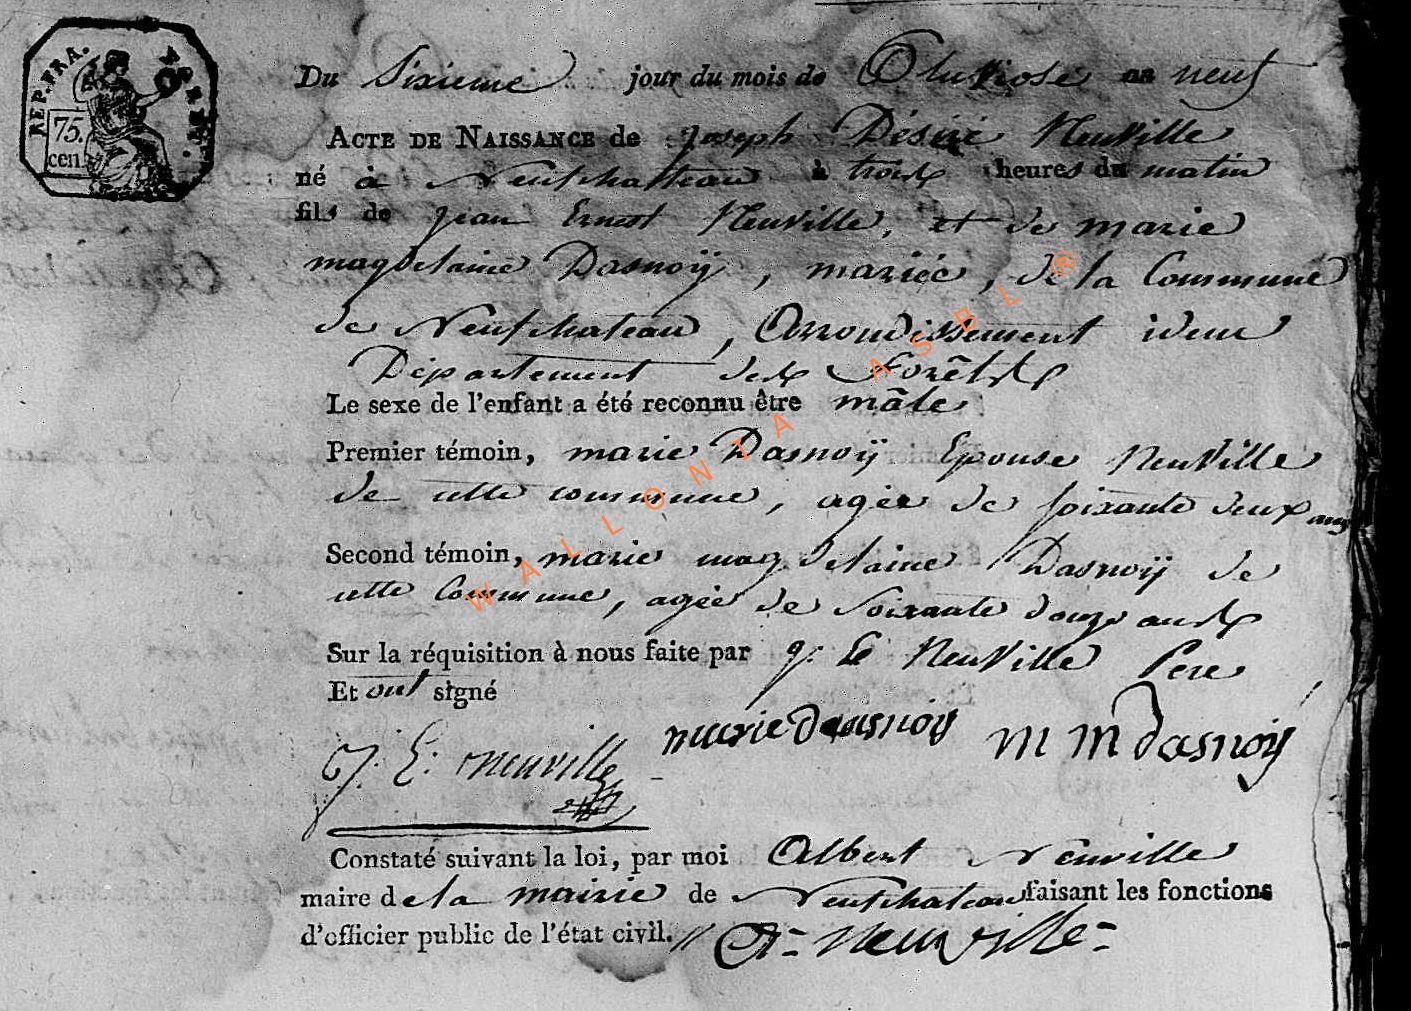 REP. FRA.
75.
cen.
Du Sixieme jour du mois de Pluviose an neuf
ACTE DE NAISSANCE de Joseph Désiré Neuville
né à Neufchatteau à trois heures du matin
fils de Jean Ernest Neuville, et de marie
magdelaine Dasnoÿ, mariée, de la Commune
de Neufchateau, Arrondissement idem
Département des Forêts
Le sexe de l'enfant a été reconnu être mâle
Premier témoin, marie Dasnoÿ Epouse Neuville
de cette commune, agée de soixante deux ans
Second témoin, marie magdelaine Dasnoÿ de
cette Commune, agée de soixante douze ans
Sur la réquisition à nous faite par J. E Neuville Pere
Et ont signé
J. E: neuville marie dasnoy m m dasnoy
Constaté suivant la loi, par moi Albert Neuville
maire de la mairie de Neufchateau faisant les fonctions
d'officier public de l'état civil. A= Neuville=
WALLONIA ASBL ®